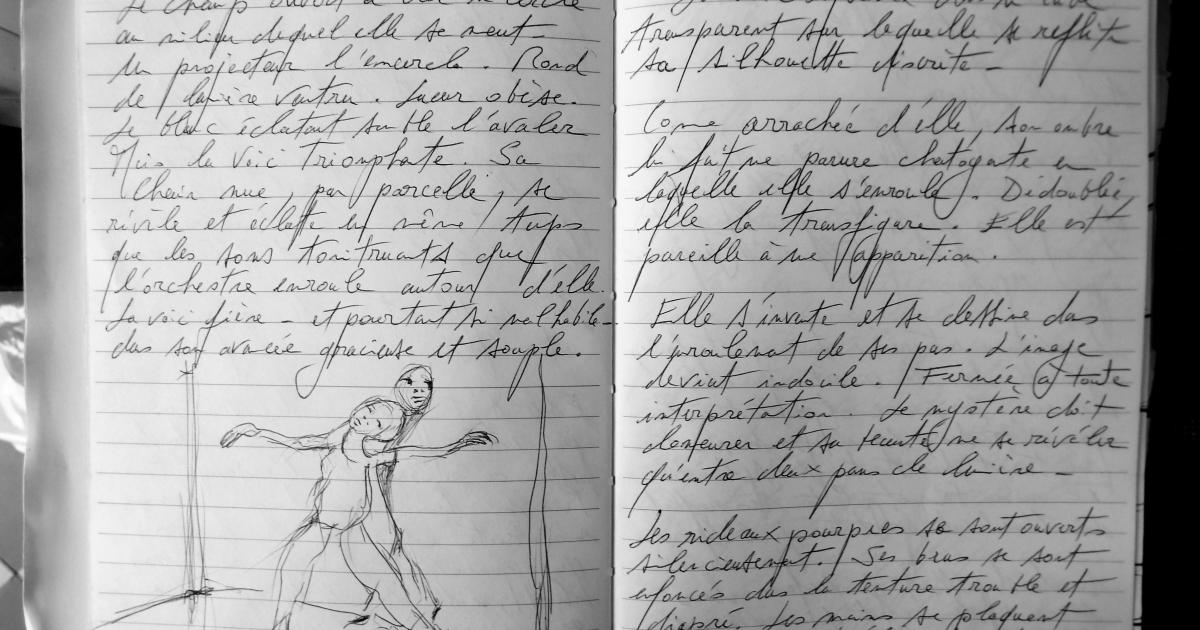 Le champ ouvert a
au milieu duquel elle se meut -
Un projecteur l'encercle. Rond
de lumière ventru. Lueur obèse.
Le blanc éclatant semble l'avaler
Mais la voici triomphante. Sa
chair nue, par parcelle, se
révèle et éclate en même temps
que les sons tonitruants que
l'orchestre enroule autour d'elle.
La voici fière - et pourtant si malhabile -
dans son avancée gracieuse et souple.
transparent sur laquelle se reflète
sa silhouette discrète -
Comme arrachée d'elle, son ombre
lui fait une parure chatoyante en
laquelle elle s'enroule. Dédoublée,
elle la transfigure. Elle est
pareille à une apparition.
Elle s'invente et se dessine dans
l'enroulement de ses pas. L'image
devient indocile. Fermée à toute
interprétation. Le mystère doit
demeurer et sa beauté ne se révéler
qu'entre deux pans de lumière -
Les rideaux pourpres se sont ouverts
silencieusement. Ses bras se sont
enfoncés dans la tenture trouble et
diapré. Les mains se plaquent